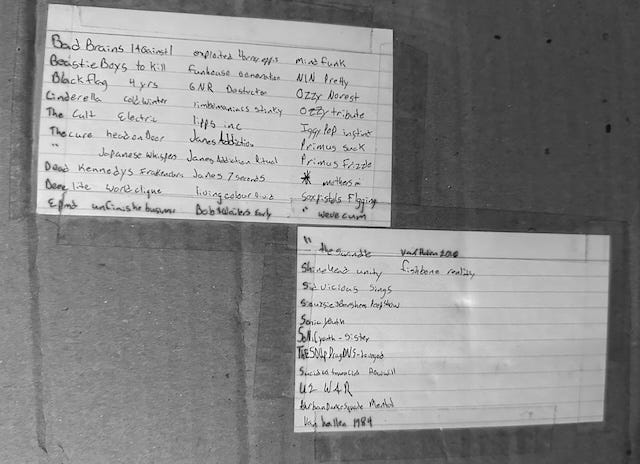 Bad Brains I Against I exploited Horror epics mindfunk
Beastie Boys to Kill funhouse Generation NIN Pretty
Black flag 4 yrs G.N.R Destruction Ozzy Norest
Cinderella cold winter limbomaniacs stinky Ozzy tribute
The Cult Electric lipps inc Iggy Pop instinct
The cure head on Door Janes Addiction Primus suck
" Japanese Whispers Janes Addiction Ritual Primus Frizzle
Dead Kennedys Janes 7 seconds * mothers m
Deee lite world clique living colour Vivid Sexpistols Flogging
Epmd unfinishe busines Bob & Wailers Early " wevecum
" the swindle Van Halen
Shinehead unity fishbone reality
Sid vicious sings
Siouxsie Banshees Peepshow
Sonic Youth
Sonic youth - Sister
The Snap Dragons
Suicidal tendencies
U2 WAR
Urban Dance Squade Mental
Van hallen 1984